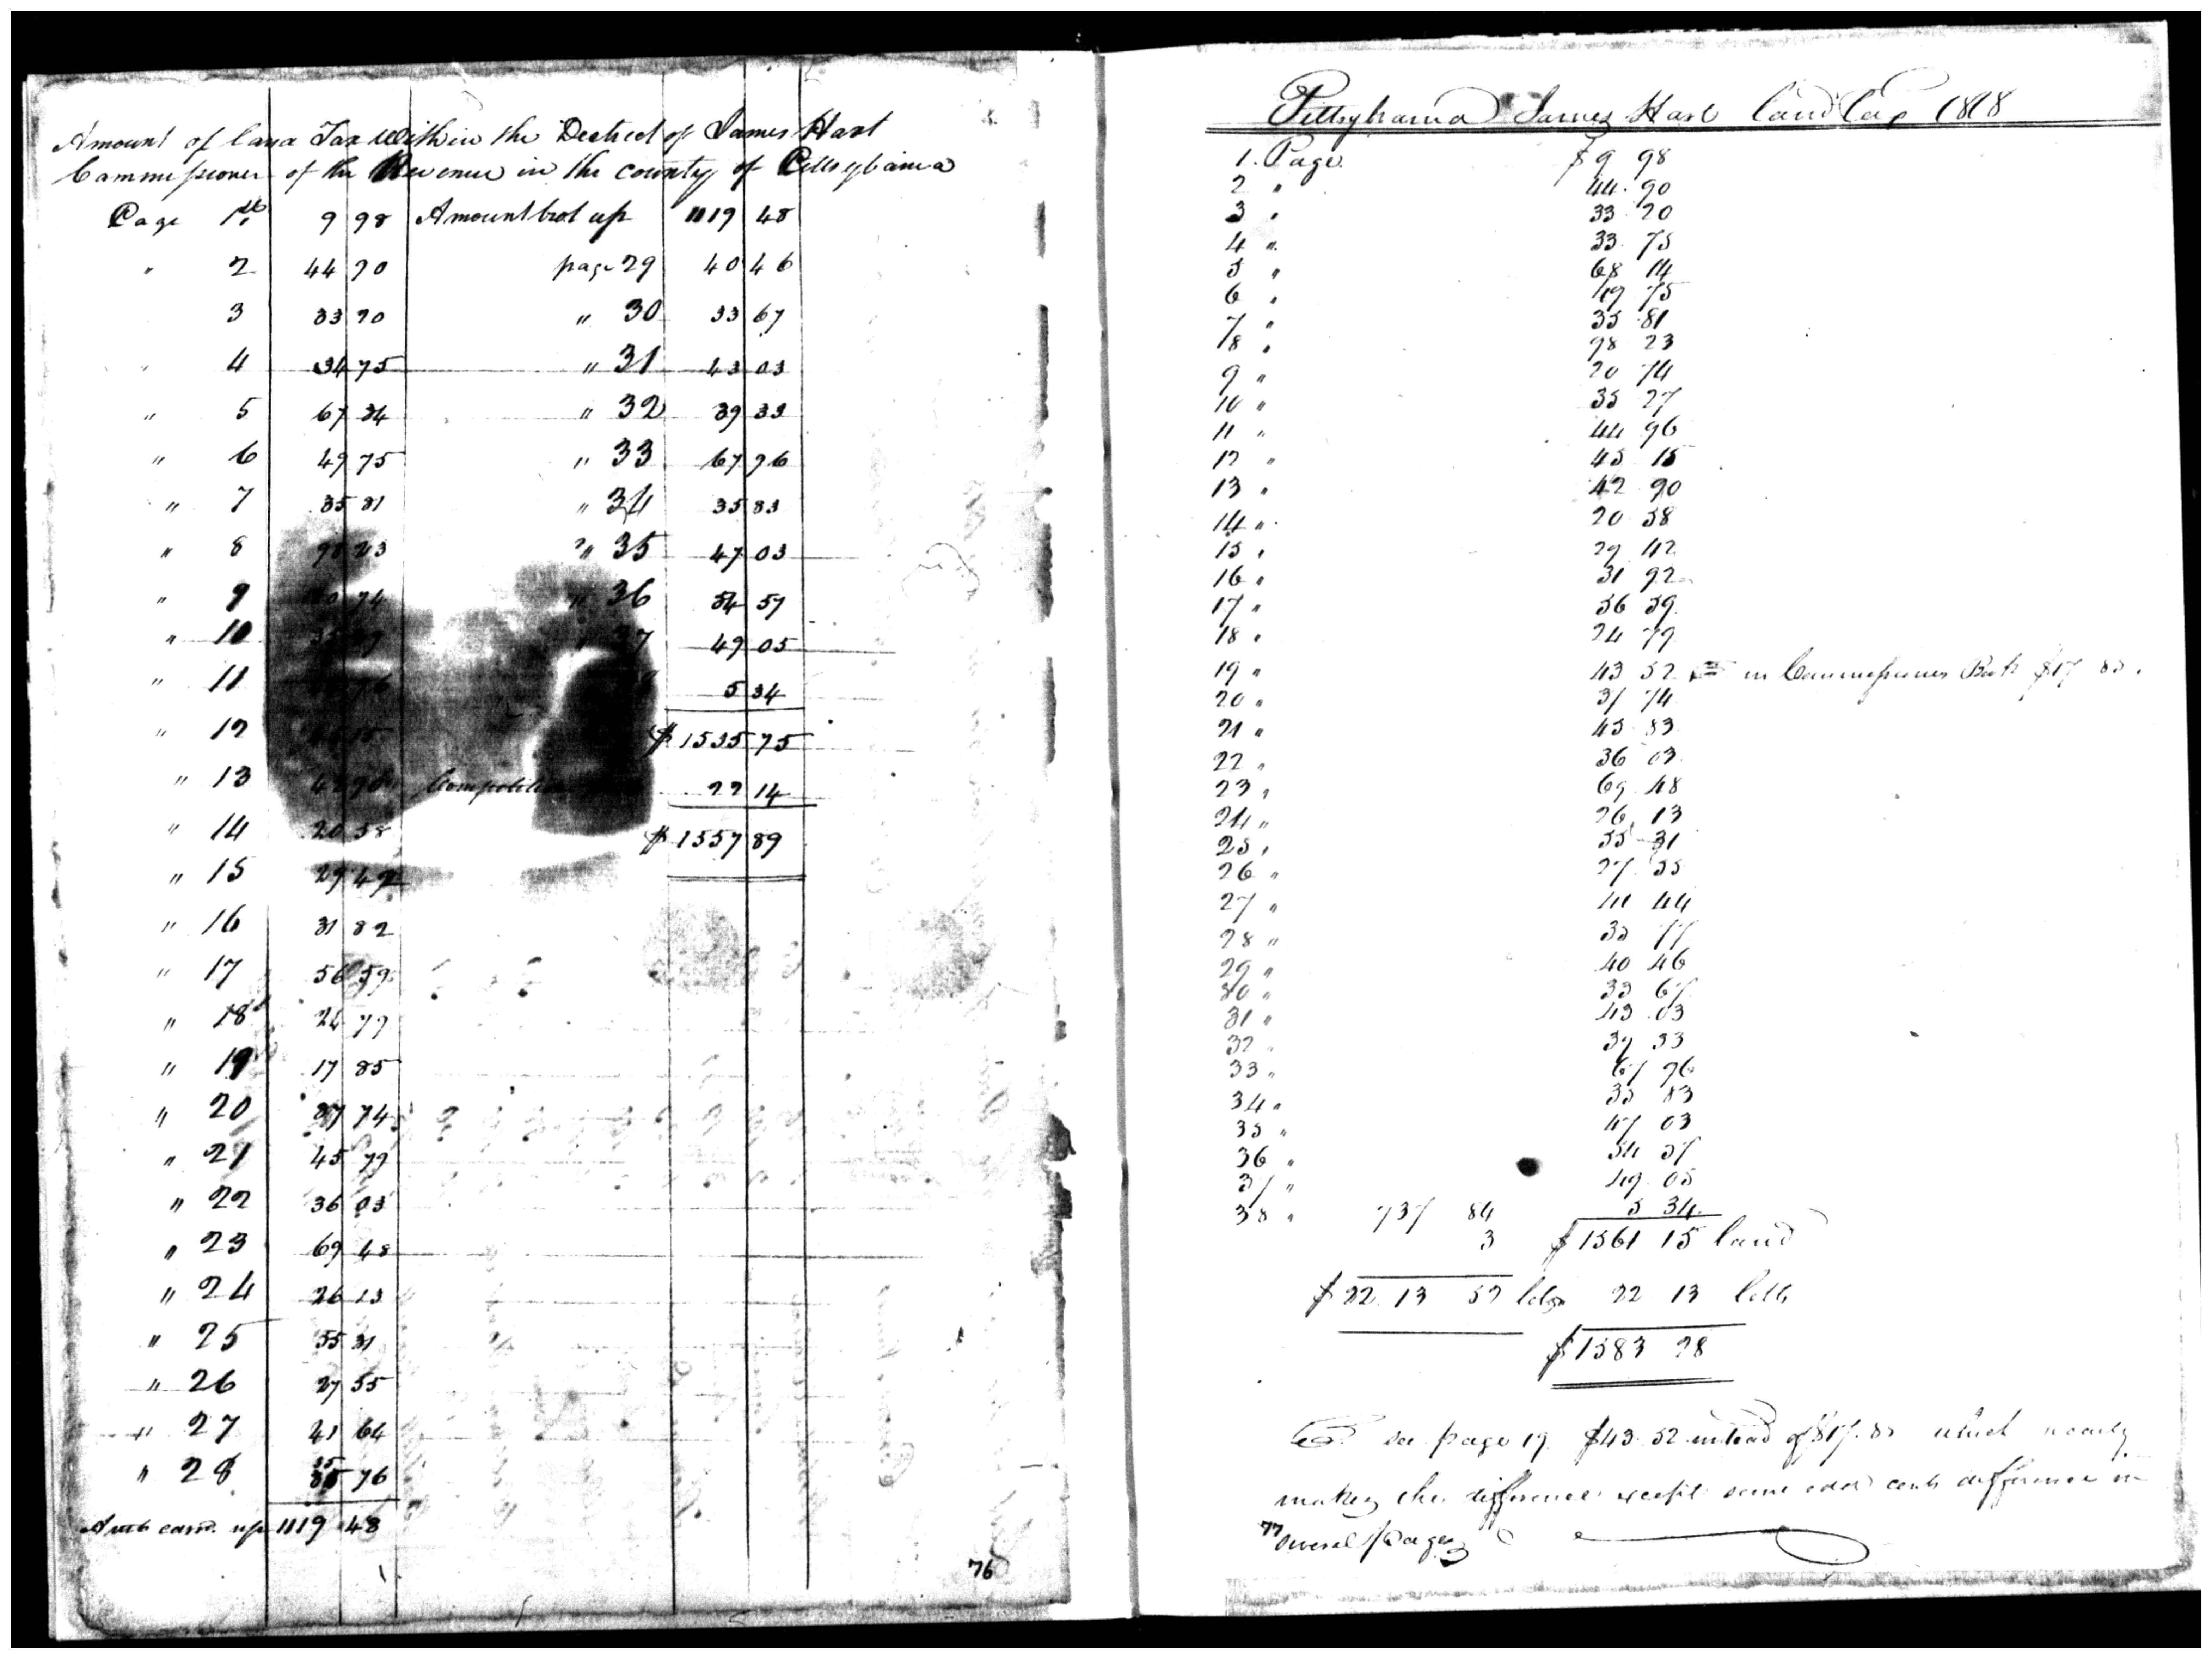 Amount of land Tax within the District of James Hart
Commissioner of the Revenue in the county of Pittsylvania
Page 1st 9 98 Amount brot up 1119 48
" 2 44 90 page 29 40 46
3 33 90 " 30 33 67
" 4 34 75 " 31 43 03
" 5 67 34 " 32 39 33
" 6 49 75 " 33 67 96
" 7 35 81 " 34 35 83
" 8 98 23 " 35 47 03
" 9 74 " 36 54 57
" 10 37 49 05
" 11 5 34
" 12 $ 1535 75
" 13 42 90 22 14
" 14 20 58 $ 1557 89
" 15 29 42
" 16 31 82
" 17 56 59
" 18 24 79
" 19 17 85
" 20 37 74
" 21 45 79
" 22 36 03
" 23 69 48
" 24 26 13
" 25 55 31
" 26 27 55
" 27 41 64
" 28 35 76
Amt card. up 1119 48
76
Pittsylvania James Hart land Tax 1818
1. Page. $ 9 98
2 " 44. 90
3 " 33 90
4 " 33 75
5 " 68 14
6 " 49 75
7 " 35 81
8 " 98 23
9 " 20 74
10 " 35 27
11 " 44 96
12 " 45 15
13 " 42 90
14 " 20 58
15 " 29 42
16 " 31 92
17 " 56 59
18 " 24 79
19 " 43 52 in Commissioners Book $17 85.
20 " 37 74
21 " 45 83
22 " 36 03
23 " 69 48
24 " 26 13
25 " 55 31
26 " 27 55
27 " 41 44
28 " 35 77
29 " 40 46
30 " 33 67
31 " 43 03
32 " 39 33
33 " 67 96
34 " 35 83
35 " 47 03
36 " 54 57
37 " 49 05
38 " 737 84 5 34
3 $ 1561 15 land
$ 22 13 52 lots 22 13 lots
$ 1583 28
see page 19 $43 52 instead of $17.85 which nearly
makes the difference except some odd cents difference in
77 several pages